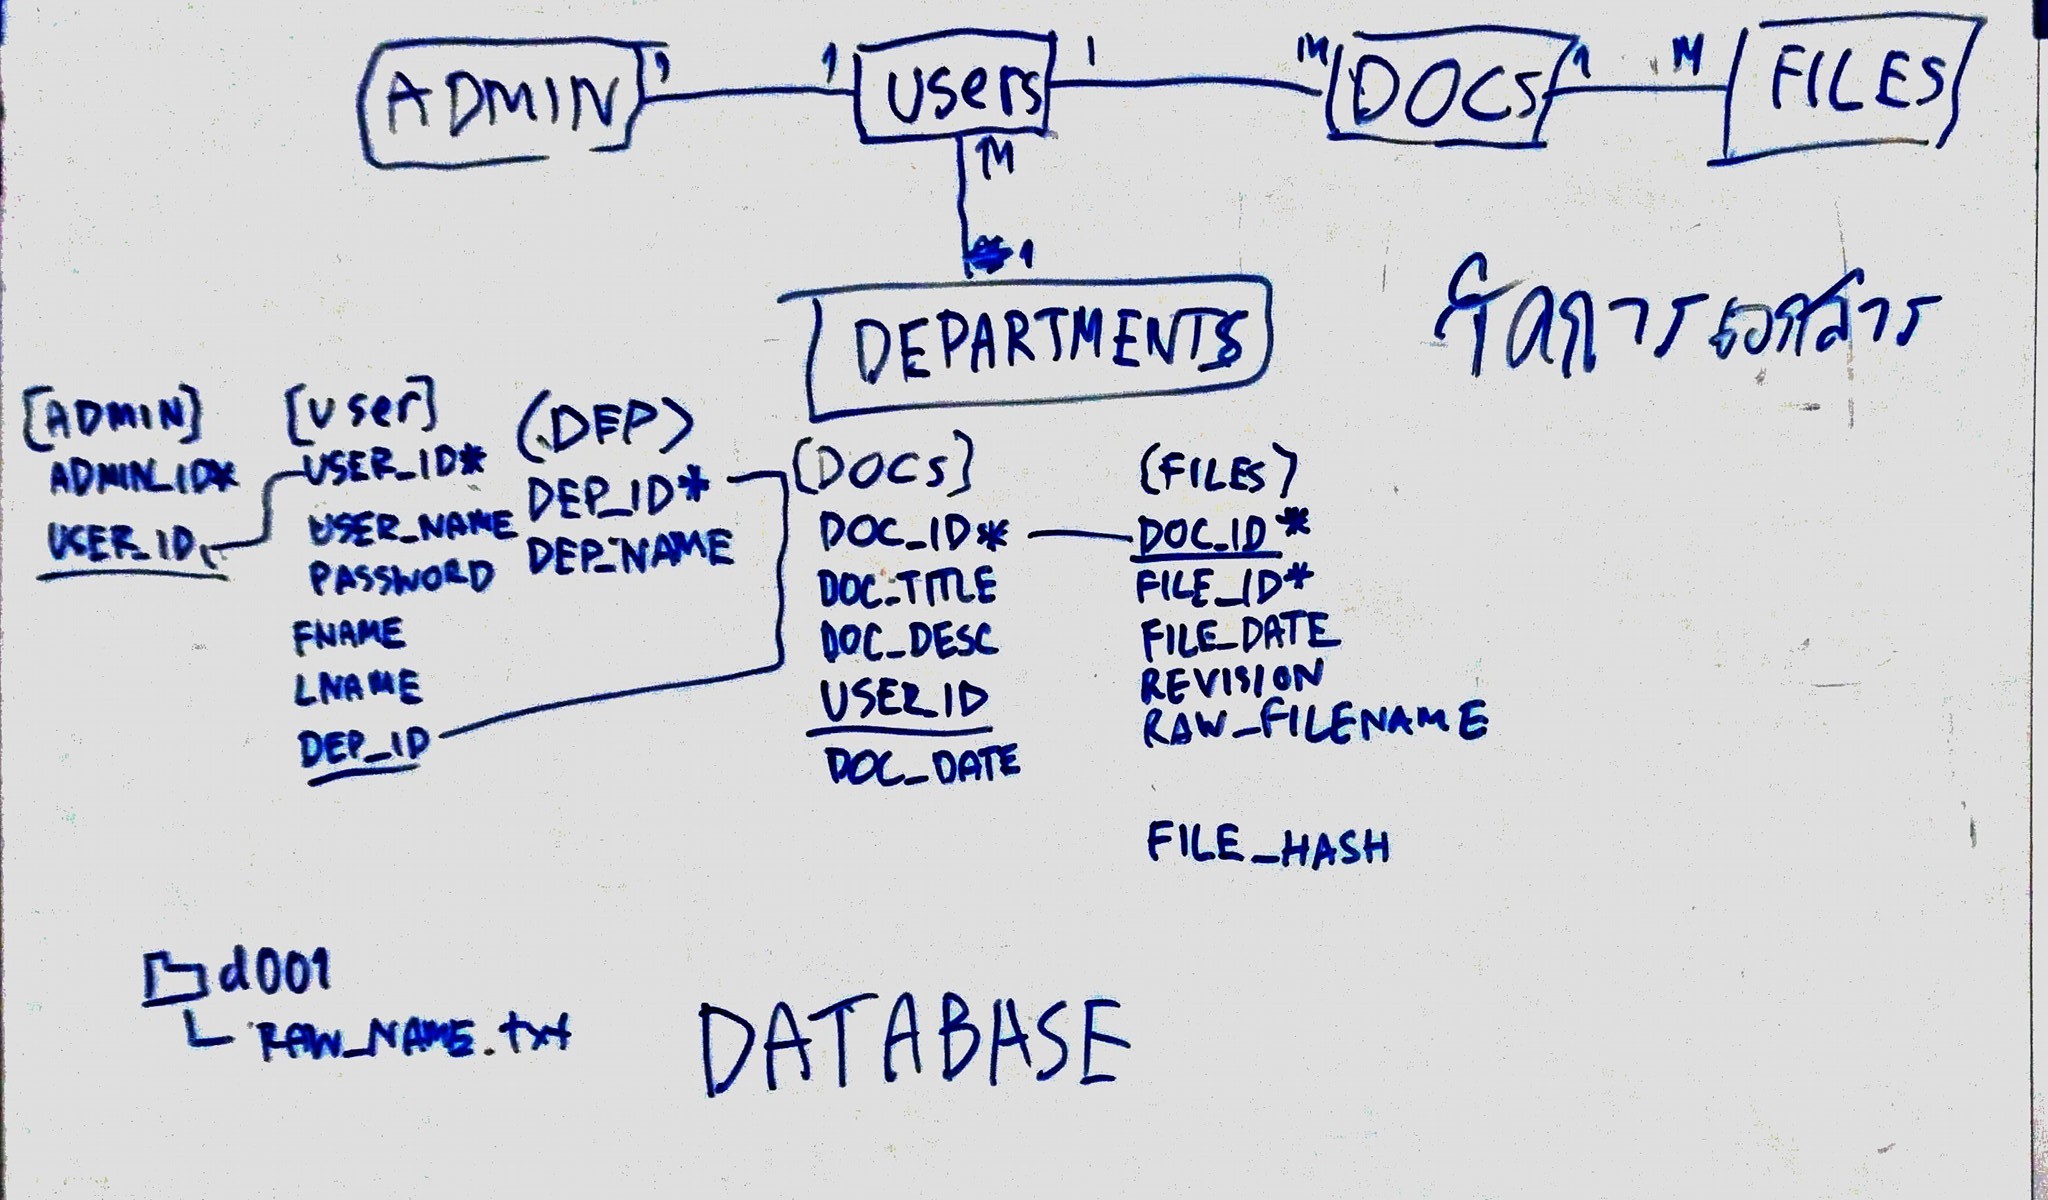 ADMIN 1 1 Users 1 M DOCs 1 M FILES
M
1
DEPARTMENTS
จัดการเอกสาร
[ADMIN]
ADMIN_ID*
USER_ID
[User]
USER_ID*
USER_NAME
PASSWORD
FNAME
LNAME
DEP_ID
(DEP)
DEP_ID*
DEP_NAME
[DOCs]
DOC_ID*
DOC_TITLE
DOC_DESC
USER_ID
DOC_DATE
(FILES)
DOC_ID*
FILE_ID*
FILE_DATE
REVISION
RAW_FILENAME
FILE_HASH
d001
RAW_NAME.txt
DATABASE